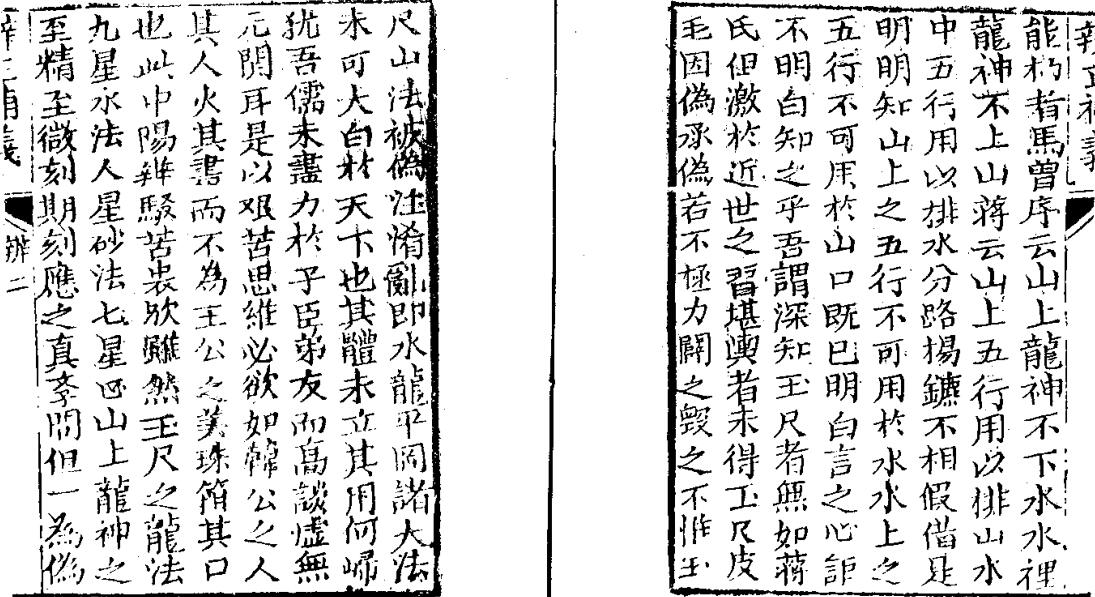 辨正補義
能朽者馬曾序云山上龍神不下水水裡
龍神不上山蔣云山上五行用以排山水
中五行用以排水分路揚鑣不相假借是
明明知山上之五行不可用於水水上之
五行不可用於山口既已明白言之心詎
不明白知之乎吾謂深知玉尺者無如蔣
氏但激於近世之習堪輿者未得玉尺皮
毛因偽承偽若不極力闢之毀之不惟玉
尺山法被偽注淆亂即水龍平岡諸大法
未可大白於天下也其體未立其用何歸
猶吾儒未盡力於子臣弟友而高談虛無
元閴耳是以艰苦思維必欲如韓公之人
其人火其書而不為王公之美珠箱其口
也此中陽辨駁苦衷歟雖然玉尺之龍法
九星水法人星砂法七星四山上龍神之
至精至微刻期刻應之真李問但一為偽
辨正補義
辨二